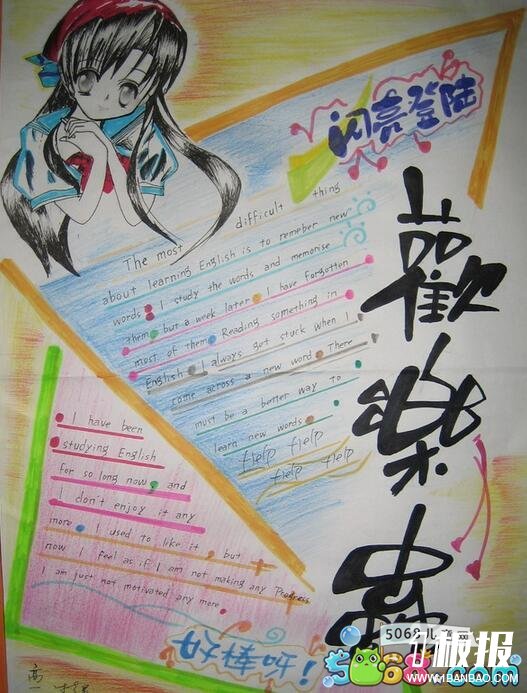 闪亮登陆
The most difficult thing
about learning English is to remeber new
words I study the words and memorise
them but a week later I have forgotten
most of them Reading something in
English I always get stuck when I
come across a new word There
must be a better way to
learn new words
Help Help
Help Help
I have been
studying English
for so long now and
I don't enjoy it any
more I used to like it but
now I feel as if I am not making any Progress
I am just not motivated any more
歡樂
高一
5068儿童网
5068.com
板报
WWW.1BANBAO.COM